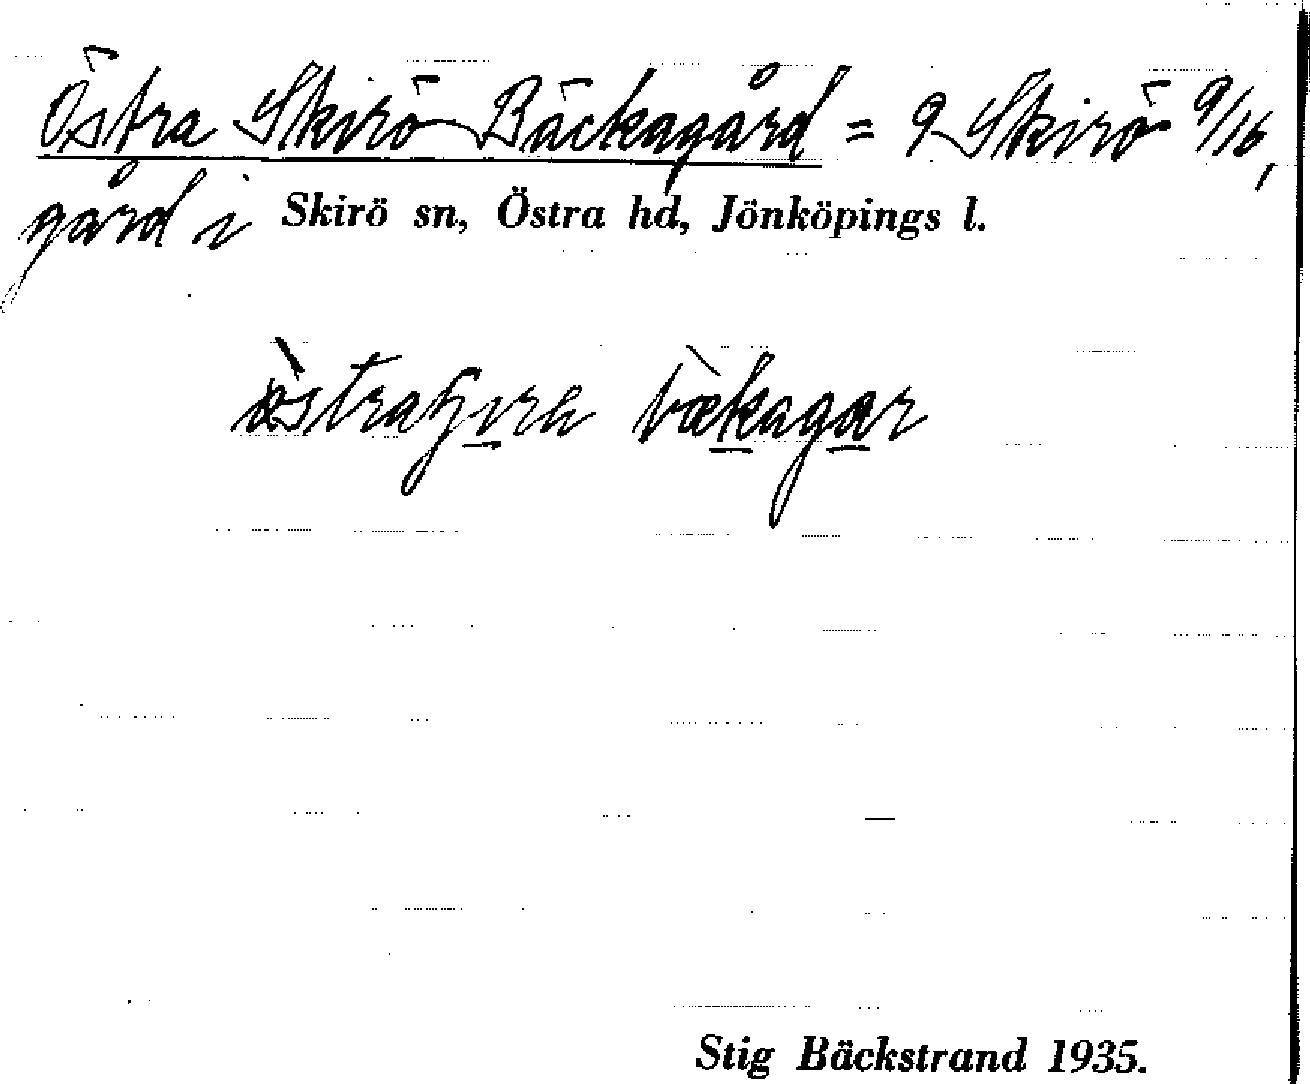 Östra Skirö Bäckagård = 9 Skirö 9/16,
gård i Skirö sn, Östra hd, Jönköpings l.
bækagær
Stig Bäckstrand 1935.